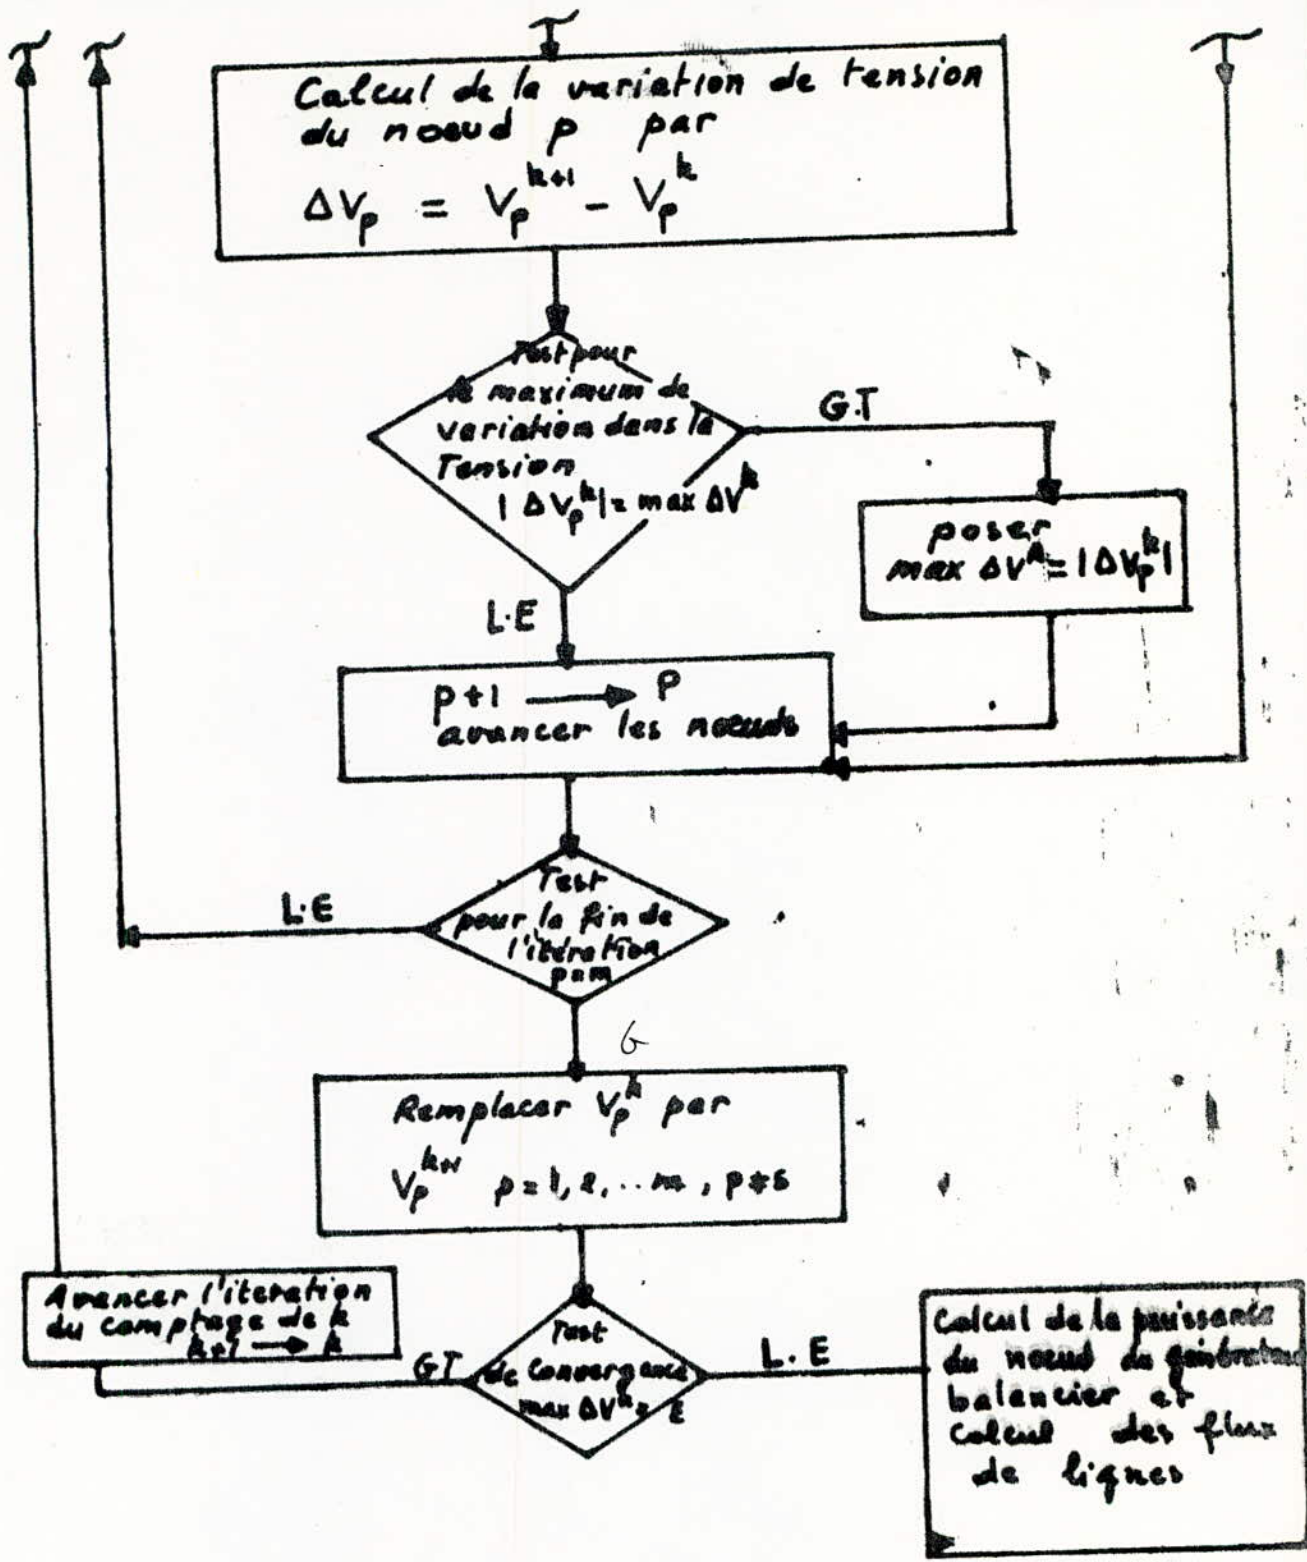 Calcul de la variation de tension
du noeud p par
ΔVp = Vp^k+1 - Vp^k
Test pour
le maximum de
variation dans la
Tension
|ΔVp^k| = max ΔV^k
G.T
poser
max ΔV^k = |ΔVp^k|
L.E
p+1 → P
avancer les noeuds
Test
pour la fin de
l'itération
p=m
L.E
G
Remplacer Vp^k par
Vp^k+1 p=1, 2, ..m, p≠s
Avancer l'iteration
du comptage de k
k+1 → k
Test
de convergence
max ΔV^k = ε
GT
L.E
Calcul de la puissance
du noeud du générateur
balancier et
calcul des flux
de lignes